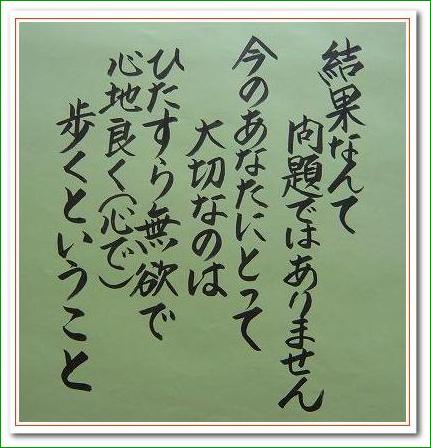 結果なんて
問題ではありません
今のあなたにとって
大切なのは
ひたすら無欲で
心地良く(心で)
歩くということ